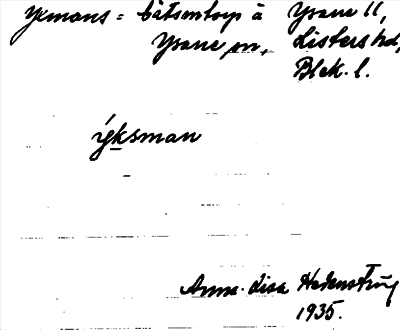 Ykmans = båtsmtorp å Ysane 11,
Ysane sn, Listers hd,
Blek. l.
ýksman
Anna-Lisa Hedenström
1935.